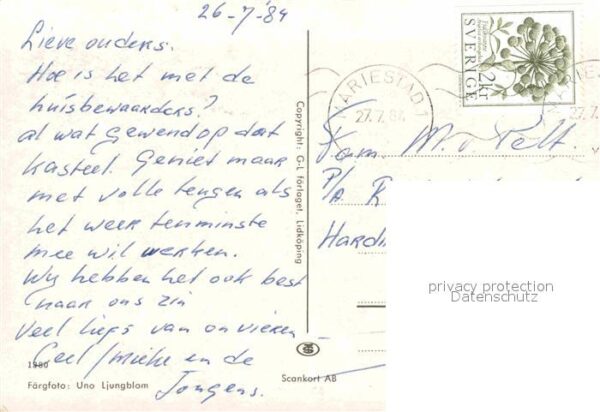 26-7-'84
Lieve ouders.
Hoe is het met de
huisbewaarders?
al wat gewend op dat
kasteel. Geniet maar
met volle teugen als
het weer tenminste
mee wil werken.
Wij hebben het ook best
naar ons zin
Veel liefs van on vieren
Ceel / Mieke en de
Jongens.
1980
Färgfoto: Uno Ljungblom
Scankort AB
Copyright: G-L förlaget, Lidköping
MARIESTAD 1
27.7.84
SVERIGE
2kr
27.7
Fam. M. v. Pelt.
P/A
privacy protection
Datenschutz